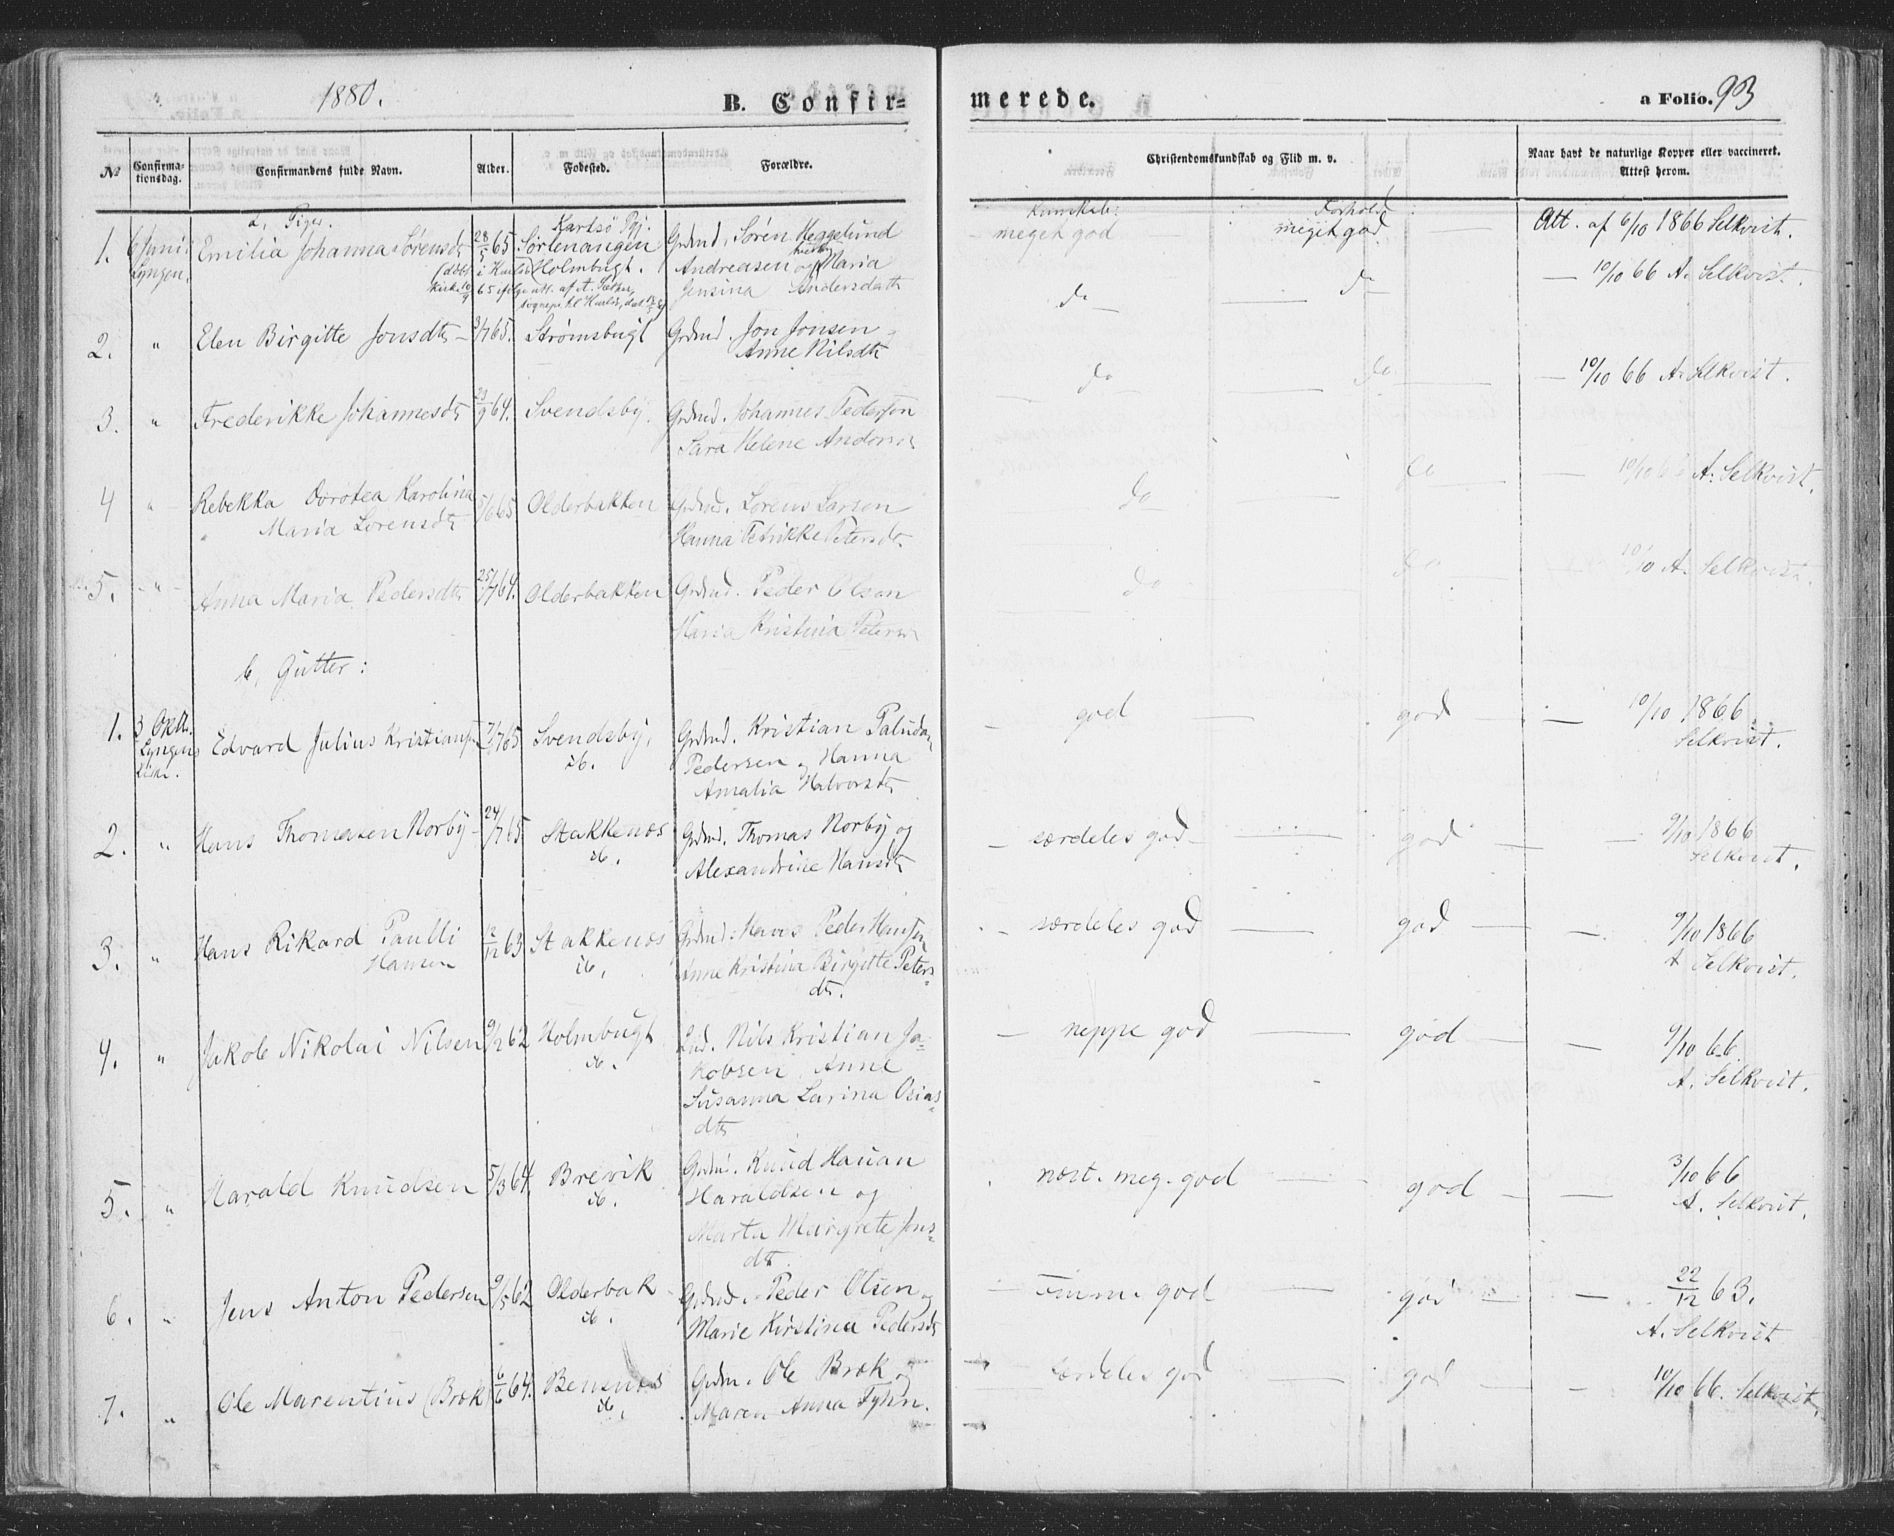 1880.
B. Confir-
merede.
a Folio. 93
№
Confirma-
tionsdag.
Confirmandens fulde Navn.
Alder.
Fødested.
Forældre.
Christendomskundskab og Flid m. v.
Naar havt de naturlige Kopper eller vaccineret.
Attest herom.
Piger.
Kundskab:
Forhold
1. 6 Juni Lyngen. Emilia Johanna Sørensdtr 28/5 65 Karlsö Pgj. Sörlenangen Holmbugt. Grdmd. Sören Heggelund
Andreasen og Maria
Jensina Andersdatt
meget god — meget god. Att. af 6/10 1866 Selkvist.
2. " Elen Birgitte Jonsdtr 3/7 65. Strømsbugt Grdmd. Jon Jonsen
Anne Nilsdtr
do — do — 10/10 66 A. Selkvist.
3. " Frederikke Johannesdtr 29/9 64. Svendsby. Grdmd. Johannes Pedersen
Sara Helene Anders
do — do — 10/10 66 A. Selkvist.
4 " Rebekka Dorotea Karolina
Maria Lorensdtr 5/6 65 Olderbakken Grdmd. Lorens Larsen
Hanna Fedrikke Petersdtr.
do — do — 10/10 A. Selkvist.
5. " Anna Maria Pedersdtr 25/7 64. Olderbakken Grdmd. Peder Olsen
Maria Kristina Peters
do — do 10/10 A. Selkvist.
b, Gutter:
1. 3 Oktb. Lyngens Kirke. Edvard Julius Kristiansen 7/7 65 Svendsby, ib. Grdmd. Kristian Paludan
Pedersen og Hanna
Amalia Halvorsdtr
— god — god — 10/10 1866
Selkvist.
2. " Hans Thomasen Norby 24/7 65 Stakkenæs ib. Grdmd. Thomas Norby og
Alexandrine Hansdtr
— særdeles god — god — 9/10 1866
Selkvist.
3. " Hans Rikard Paulli
Hansen 12/12 63 Stakkenæs ib. Grdmd. Hans Peder Hansen
Anne Kristina Birgitte Peters-
dtr.
særdeles god — god — 9/10 1866
A Selkvist.
4. " Jakob Nikolai Nilsen 9/12 62 Holmbugt ib. Nils Kristian Ja-
kobsen Anne
Susanna Larina Osias-
dtr
— neppe god — god — 9/10 66.
A. Selkvist.
5. " Harald Knudsen 5/3 64. Brevik ib. Grdmd. Knud Hauan
Haraldsen og
Marta Margrete Jons-
dtr
næst. meg. god — god — 3/10 66
A. Selkvist.
6. " Jens Anton Pedersen 9/5 62 Olderbak ib. Grdmd. Peder Olsen og
Marie Kirstina Pedersdtr
god — god — 22/12 63.
A. Selkvist
7. " Ole Marentius (Bræk) 6/6 64. Bensnæs ib. Grdm. Ole Bræk og
Maren Anna Fyhn.
særdeles god — god — 10/10 66. Selkvist.